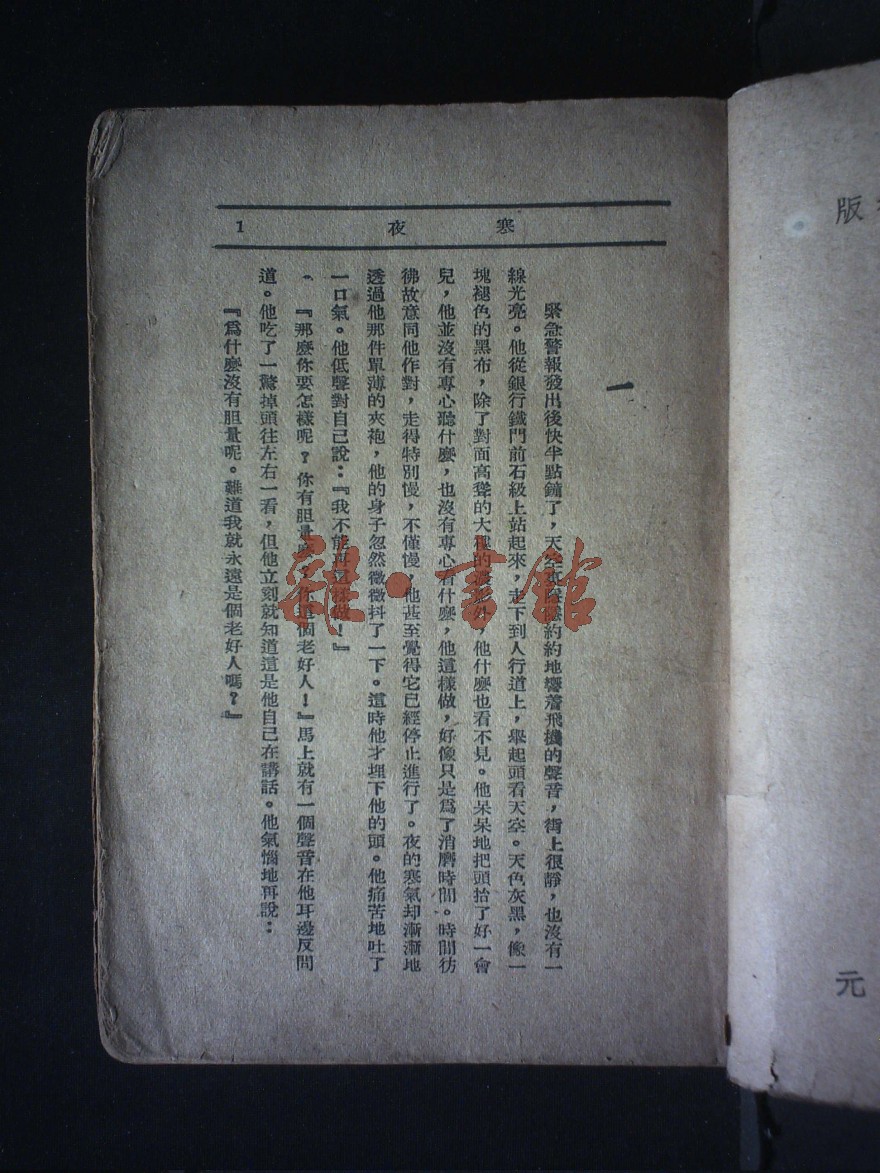 版
元
寒夜 1
一
緊急警報發出後快半點鐘了，天空裏隱隱約約地響着飛機的聲音，街上很靜，也沒有一
線光亮。他從銀行鐵門前石級上站起來，走下到人行道上，舉起頭看天空。天色灰黑，像一
塊褪色的黑布，除了對面高聳的大樓的濃影外，他什麼也看不見。他呆呆地把頭抬了好一會
兒，他並沒有專心聽什麼，也沒有專心看什麼，他這樣做，好像只是爲了消磨時間。時間彷
彿故意同他作對，走得特別慢，不僅慢，他甚至覺得它已經停止進行了。夜的寒氣却漸漸地
透過他那件單薄的夾袍，他的身子忽然微微抖了一下。這時他才埋下他的頭。他痛苦地吐了
一口氣。他低聲對自己說：『我不能再這樣做！』
『那麼你要怎樣呢？你有胆量麼？你這個老好人！』馬上就有一個聲音在他耳邊反問
道。他吃了一驚掉頭往左右一看，但他立刻就知道這是他自己在講話。他氣惱地再說：
『爲什麼沒有胆量呢。難道我就永遠是個老好人嗎？』
書館